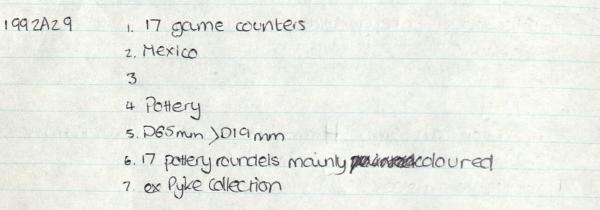 1992A29 1. 17 game counters
2. Mexico
3
4 Pottery
5. D65mm > D19mm
6. 17 pottery roundels mainly coloured
7. ex Pyke Collection